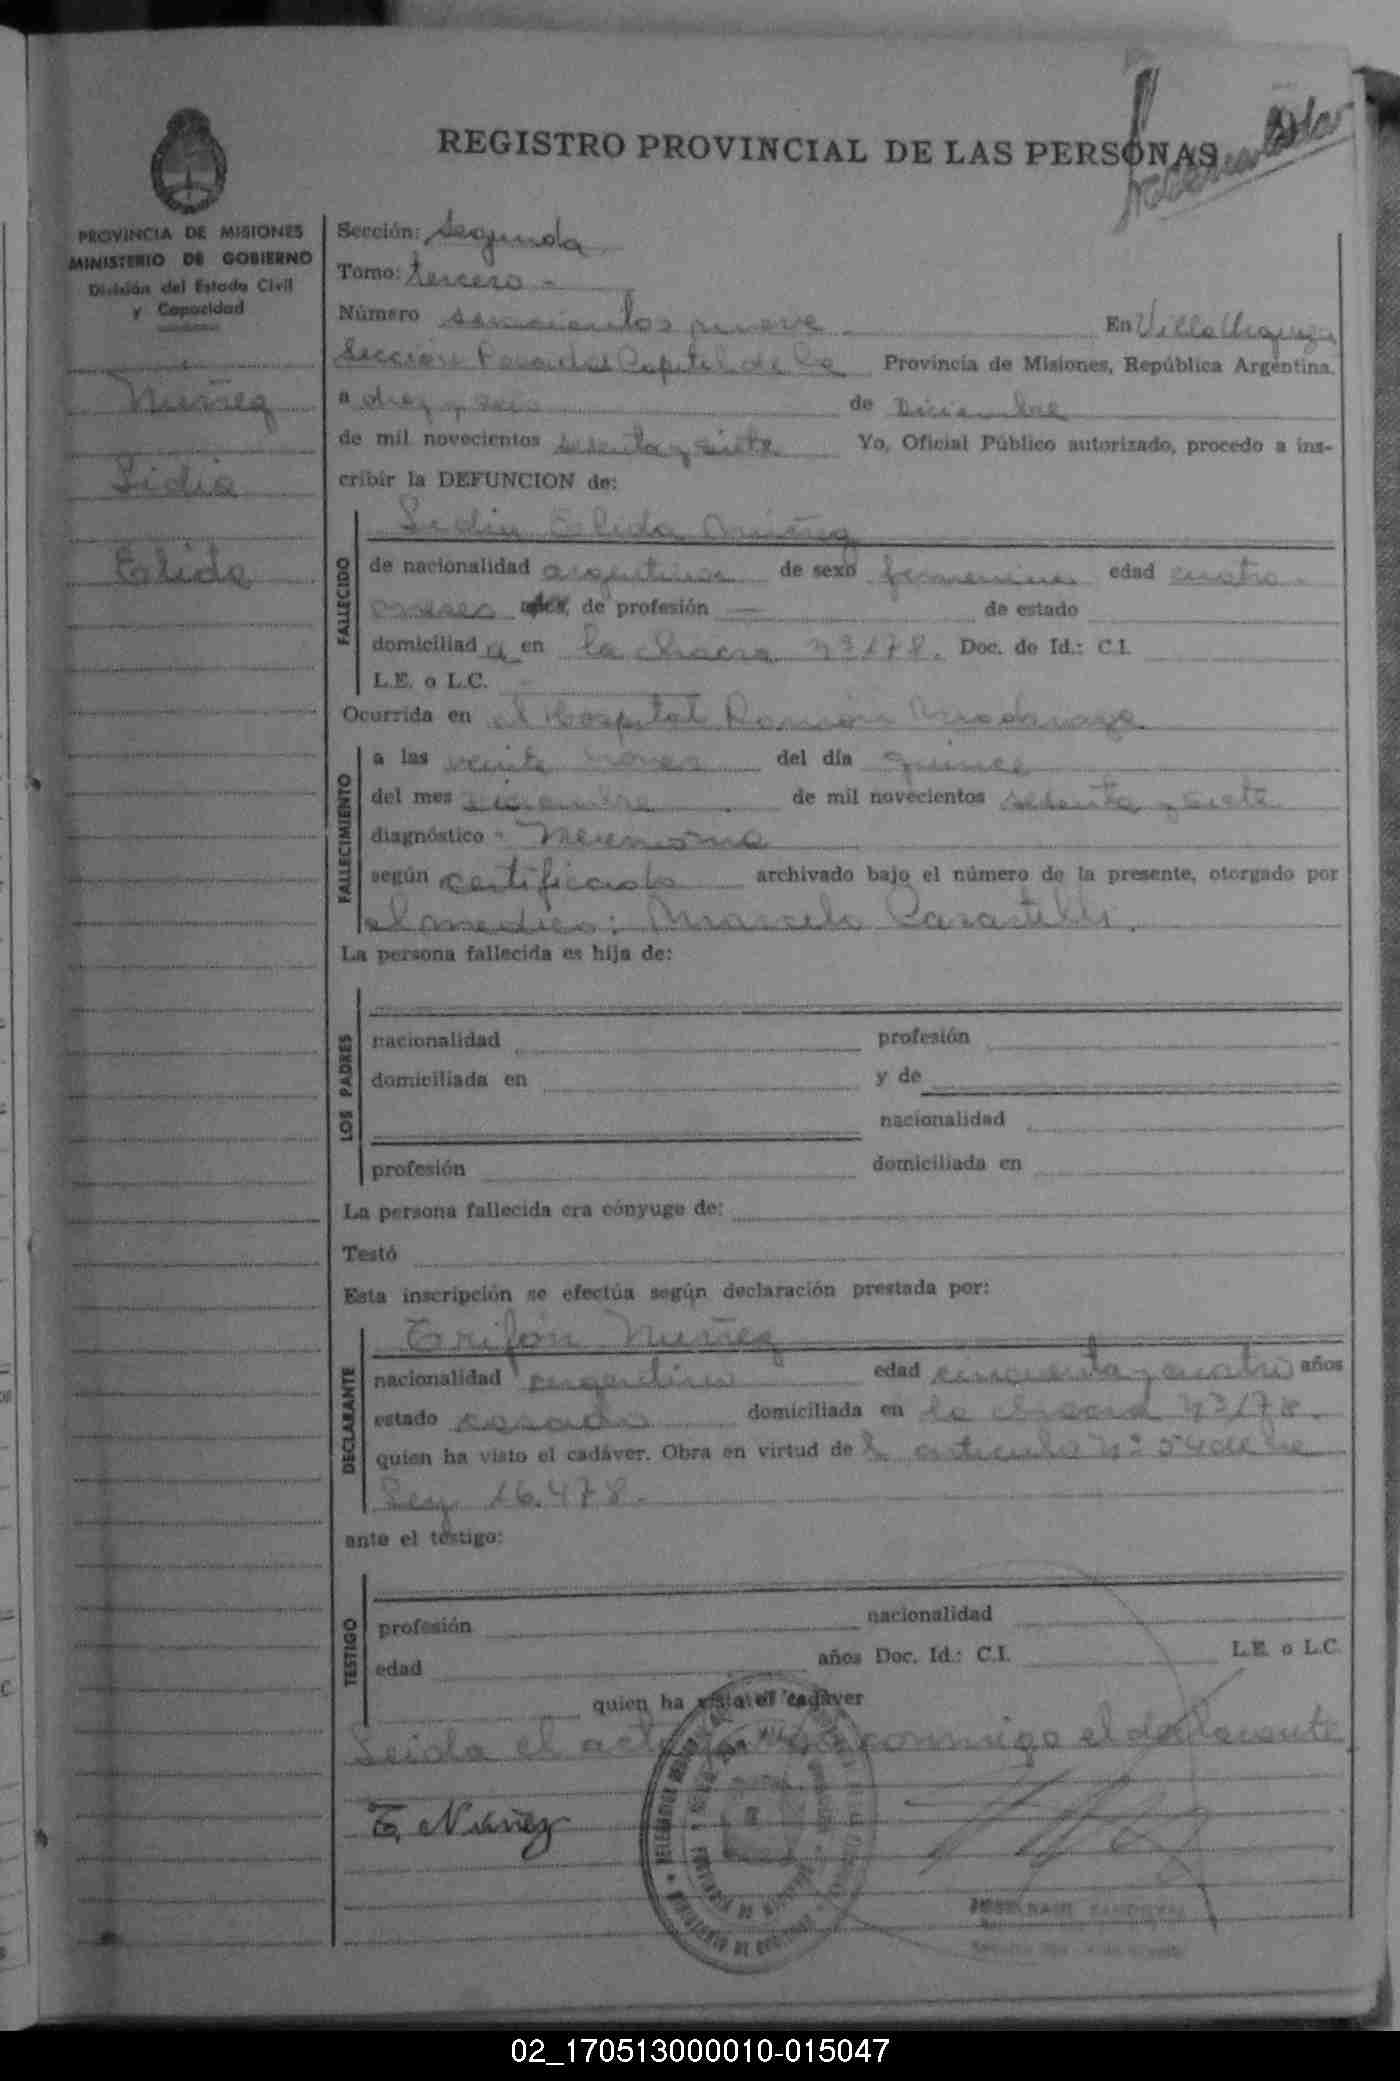 REGISTRO PROVINCIAL DE LAS PERSONAS
PROVINCIA DE MISIONES
MINISTERIO DE GOBIERNO
División del Estado Civil
y Capacidad
Nuñez
Lidia
Elida
Sección: Segunda
Tomo: tercero -
Número seiscientos nueve En Villa Urquiza
Sección Posadas Capital de la Provincia de Misiones, República Argentina,
a diez y seis de Diciembre
de mil novecientos sesenta y siete Yo, Oficial Público autorizado, procedo a ins-
cribir la DEFUNCION de:
Lidia Elida Nuñez
FALLECIDO
de nacionalidad argentina de sexo femenino edad cuatro -
meses años, de profesión — de estado
domiciliada en la chacra nº 178. Doc. de Id.: C.I.
L.E. o L.C. -
Ocurrida en el Hospital Ramón Madariaga
FALLECIMIENTO
a las veinte horas del día quince
del mes diciembre de mil novecientos sesenta y siete
diagnóstico - Neumonia
según certificado archivado bajo el número de la presente, otorgado por
el medico: Marcelo
La persona fallecida es hija de:
LOS PADRES
nacionalidad profesión
domiciliada en y de
nacionalidad
profesión domiciliada en
La persona fallecida era cónyuge de:
Testó
Esta inscripción se efectúa según declaración prestada por:
Trifón Nuñez
DECLARANTE
nacionalidad argentino edad cincuenta y cuatro años
estado casado domiciliada en la chacra nº 178.
quien ha visto el cadáver. Obra en virtud del articulo nº 54 de la
Ley 16.478.
ante el testigo:
TESTIGO
profesión nacionalidad
edad años Doc. Id.: C.I. L.E. o L.C.
quien ha visto el cadáver
Leida el acta conmigo el declarante
T. Nuñez
PROVINCIA DE MISIONES
MINISTERIO DE GOBIERNO
02_170513000010-015047